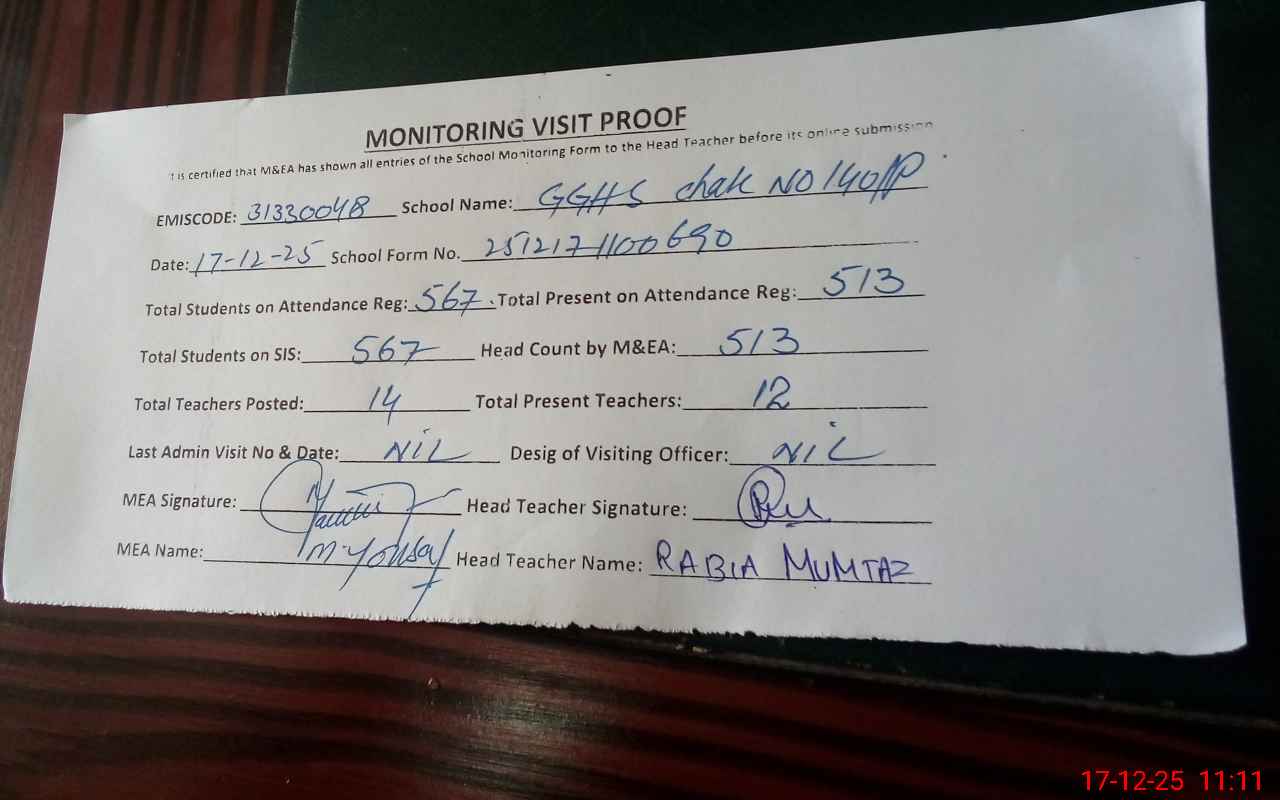 MONITORING VISIT PROOF
t is certified that M&EA has shown all entries of the School Monitoring Form to the Head Teacher before its online submission
EMISCODE: 31330048 School Name: GGHS chak NO 140/P
Date: 17-12-25 School Form No. 2512171100690
Total Students on Attendance Reg: 567 Total Present on Attendance Reg: 513
Total Students on SIS: 567 Head Count by M&EA: 513
Total Teachers Posted: 14 Total Present Teachers: 12
Last Admin Visit No & Date: NIL Desig of Visiting Officer: NIL
MEA Signature: Head Teacher Signature:
MEA Name: M-Yousaf Head Teacher Name: RABIA MUMTAZ
17-12-25 11:11